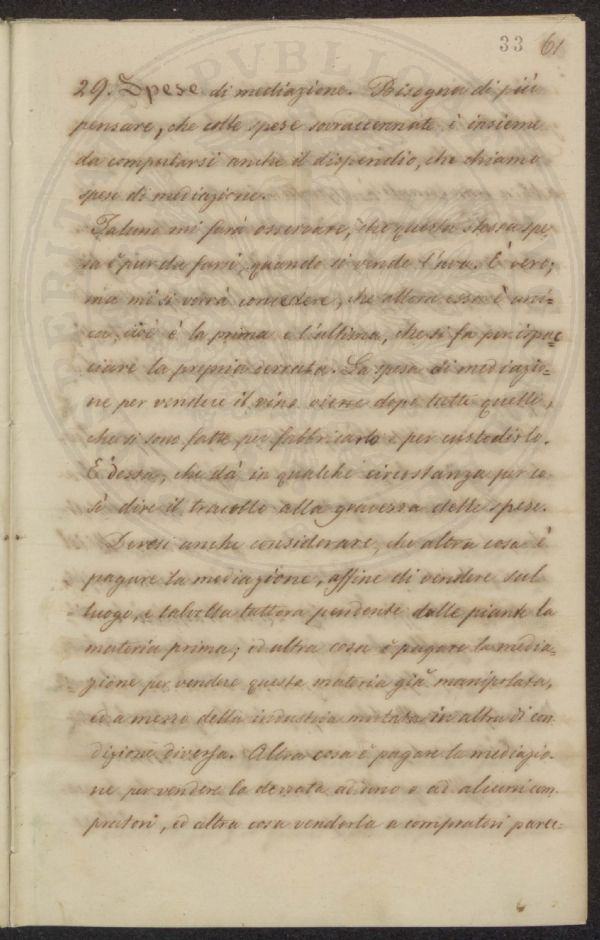 33 61
29. Spese di mediazione. Bisogna di più
pensare, che colle spese sovraccennate è insieme
da computarsi anche il dispendio, che chiamo
spese di mediazione.
Taluno mi farà osservare, che questa stessa spe-
sa è pur da farsi, quando si vende l'uva. È vero;
ma mi si vorrà concedere, che allora essa è uni-
ca, cioè è la prima e l'ultima, che si fa per ispac-
ciare la propria derrata. La spesa di mediazio-
ne per vendere il vino viene dopo tutte quelle,
che si sono fatte per fabbricarlo e per custodirlo.
È dessa, che dà in qualche circostanza per co-
sì dire il tracollo alla gravezza delle spese.
Devesi anche considerare, che altra cosa è
pagare la mediazione, affine di vendere sul
luogo, e talvolta tuttora pendente dalle piante la
materia prima; ed altra cosa è pagare la media-
zione per vendere questa materia già manipolata,
ed a mezzo della industria mutata in altra di con
dizione diversa. Altra cosa è pagare la mediazio-
ne per vendere la derrata ad uno o ad alcuni com-
pratori, ed altra cosa venderla a compratori parec-